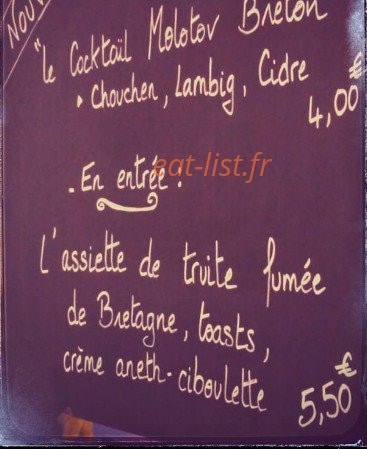 NOUV
"Le Cocktaïl Molotov Breton
• Chouchen, Lambig, Cidre
4,00 €
eat-list.fr
- En entrée :
L'assiette de truite fumée
de Bretagne, toasts,
crème aneth-ciboulette
5,50 €